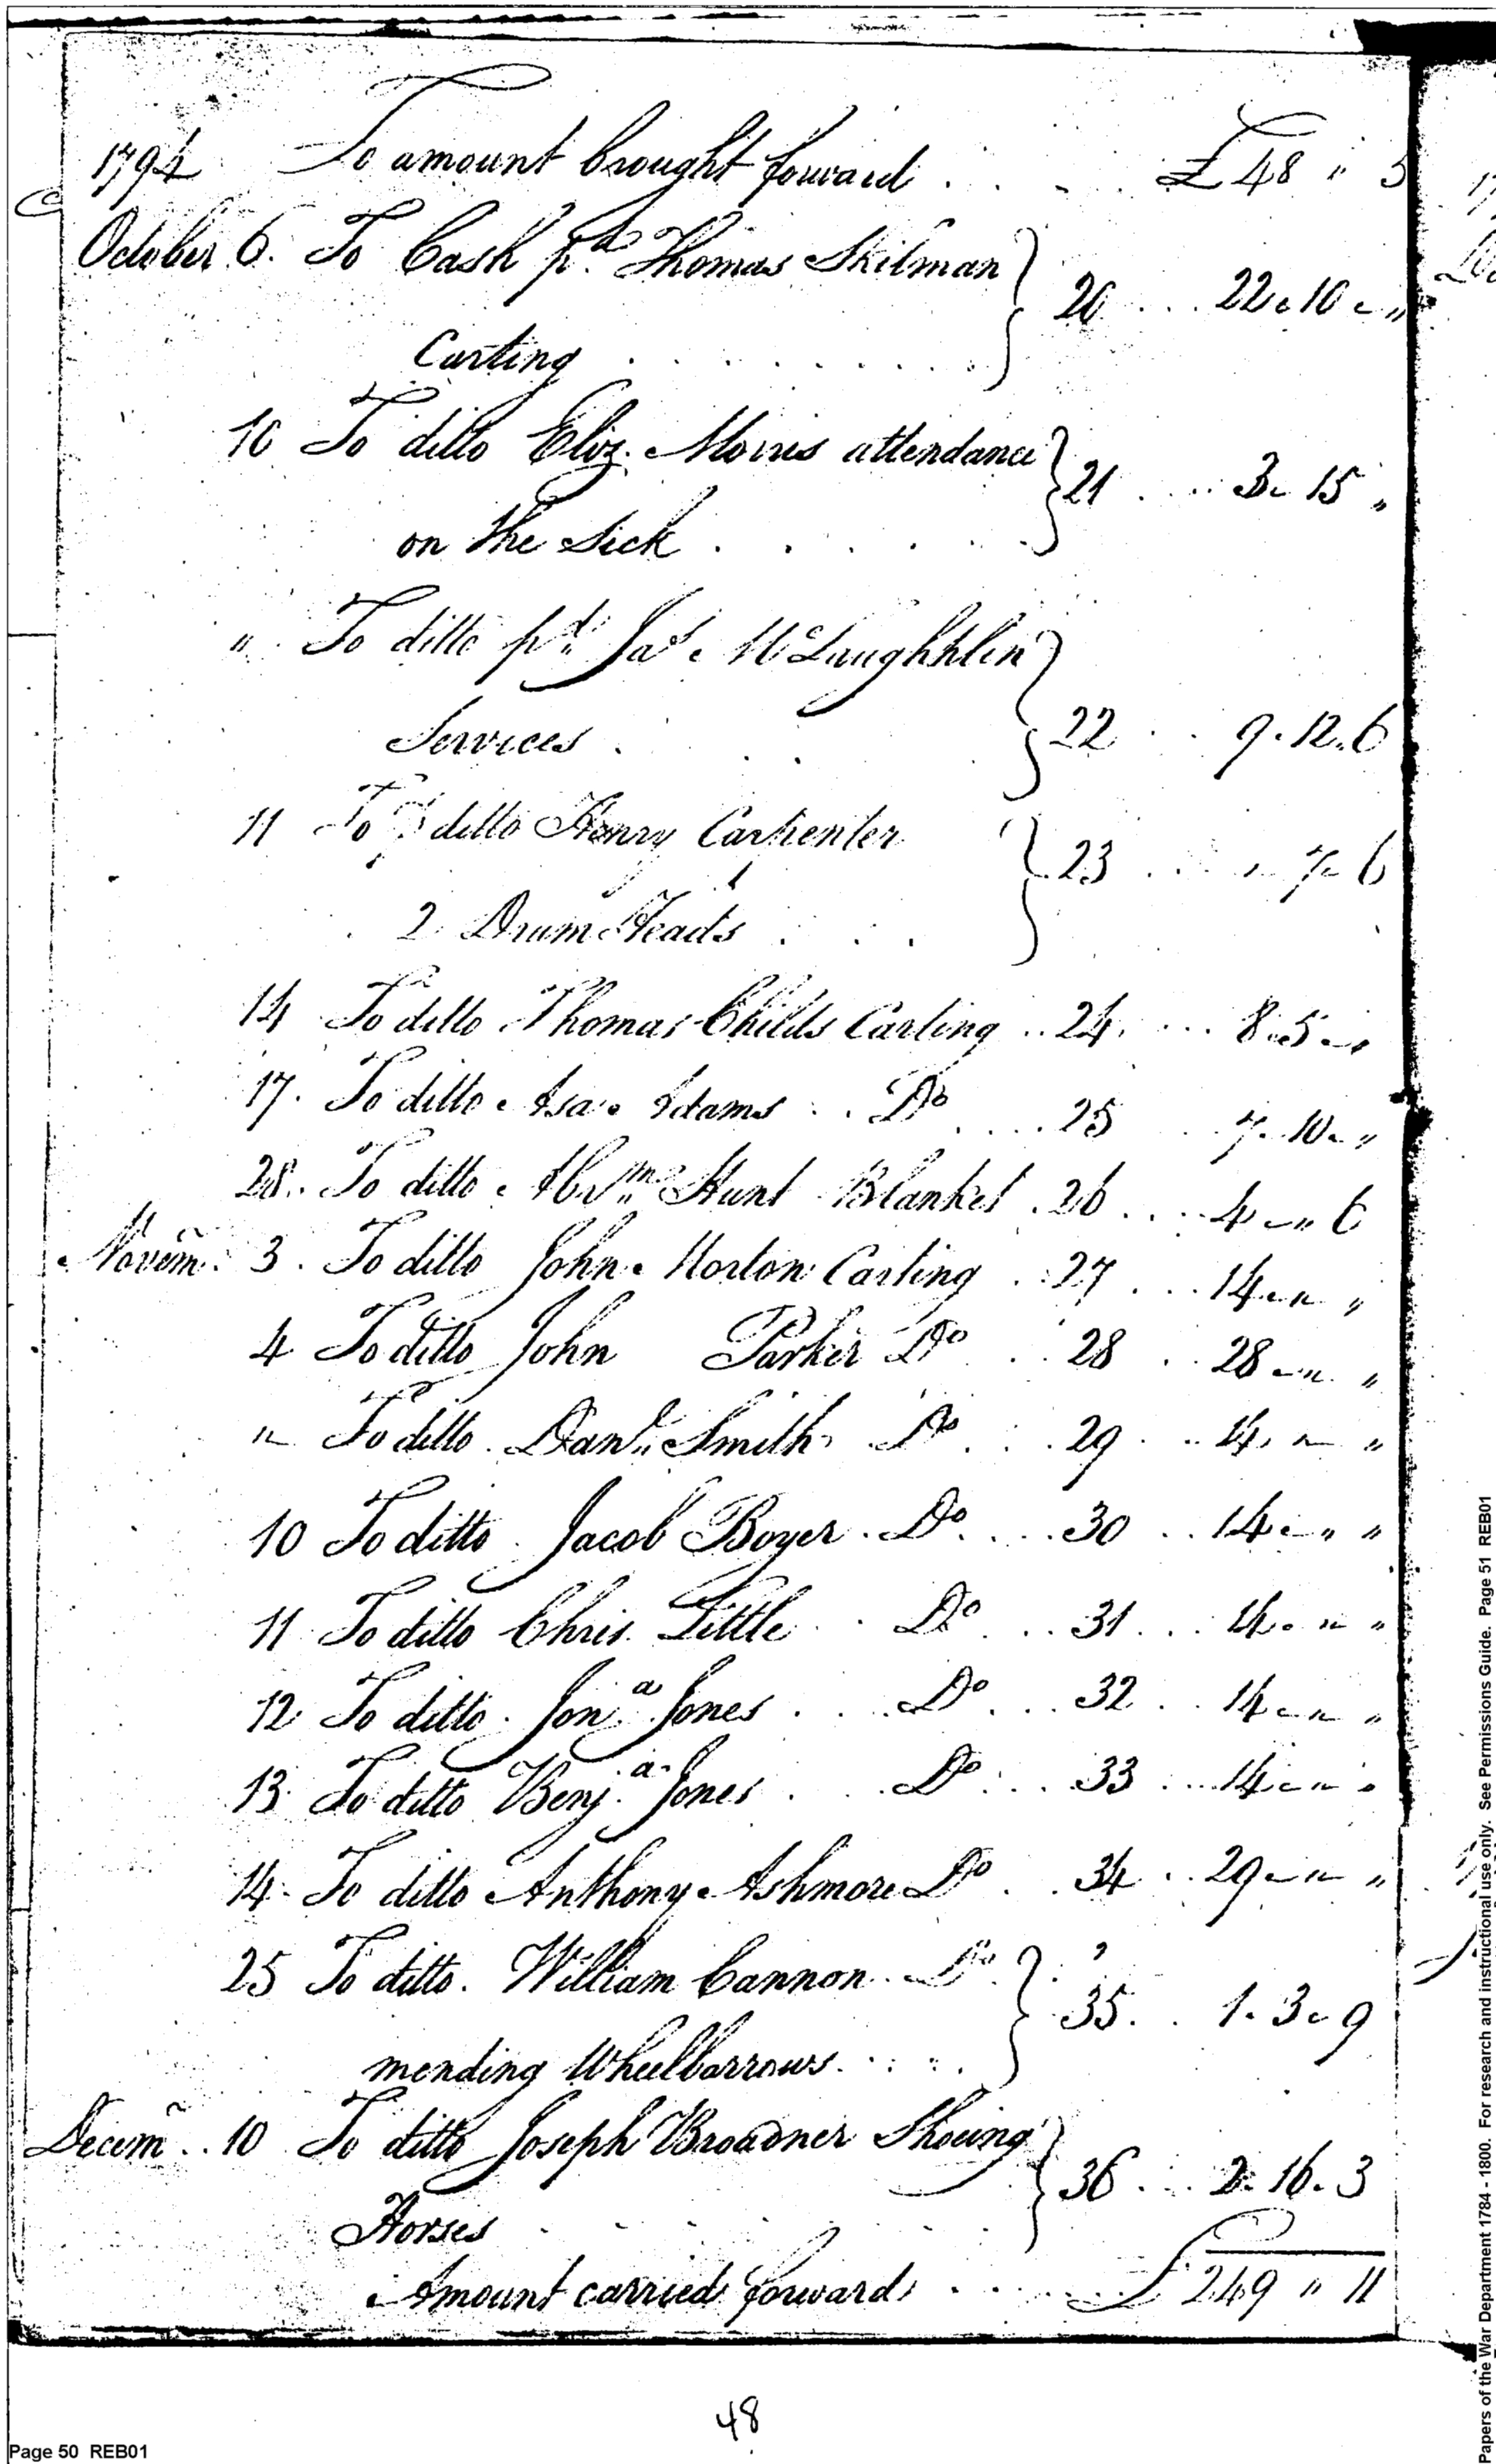 1794 To amount brought forward . . . . £ 48 " 5
October 6. To Cash pd. Thomas Skilman
Carting . . . . . . . . . } 20 . . . 22 " 10 " "
10 To ditto Eliz. Morris attendance
on the Sick . . . . . . } 21 . . . . 3 " 15 "
" To ditto pd. Jas. McLaughhlin
Services . . . } 22 . . 9 . 12 . 6
11 To ditto Henry Carpenter
2 Drum Heads . . . } 23 . . . " 7 " 6
14 To ditto Thomas Childs Carting . . 24 . . . . 8 " 5 "
17. To ditto Asa Adams . . Do . . . . 25 . . 7 . 10 . "
28. To ditto Abrm. Hunt Blanket . 26 . . . . 4 " " 6
Novem͠. 3. To ditto John Horton Carting . . 27 . . . 14 " " "
4 To ditto John Parker Do . . 28 . . 28 " " "
" To ditto Danl. Smith Do . . . 29 . . 14 " " "
10 To ditto Jacob Boyer . Do . . . . 30 . . 14 " " "
11 To ditto Chris. Little . . Do . . . 31 . . . 14 " " "
12 To ditto Jona. Jones . . . Do . . . 32 . . 14 " " "
13 To ditto Benja. Jones . . . Do . . . 33 . . . 14 " " "
14 To ditto Anthony Ashmore Do . . 34 . . 29 " " "
25 To ditto William Cannon . . Do.
mending Wheelbarrows . . . . } 35 . . 1 . 3 " 9
Decem͠ . . 10 To ditto Joseph Broadner Shoeing
Horses . . . . . . . } 36 . . . 2 . 16 . 3
Amount carried forward . . . . . £ 249 " 11
48
Page 50 REB01
Papers of the War Department 1784 - 1800. For research and instructional use only. See Permissions Guide. Page 51 REB01